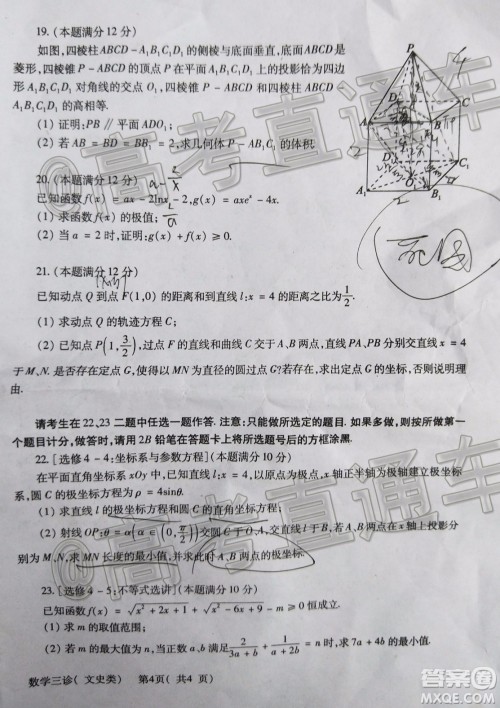 19. (本题满分12分)
如图,四棱柱ABCD-A₁B₁C₁D₁的侧棱与底面垂直,底面ABCD是
菱形,四棱锥P-ABCD的顶点P在平面A₁B₁C₁D₁上的投影恰为四边
形对角线的交点O₁,四棱锥P-ABCD和四棱柱
的高相等.
(1) 证明:PB∥平面ADO₁;
(2) 若AB=BD=BB₁=2,求几何体P-AB₁C的体积
20. (本题满分12分)
已知函数f(x)=ax-2lnx-2,g(x)=axeˣ-4x.
(1) 求函数f(x)的极值;
(2) 当a=2时,证明:g(x)+f(x)≥0.
21. (本题满分12分)
已知动点Q到点F(1,0)的距离和到直线l:x=4的距离之比为1/2.
(1) 求动点Q的轨迹方程C;
(2) 已知点P(1,3/2),过点F的直线和曲线C交于A、B两点,直线PA、PB分别交直线x=4
于M、N.是否存在定点G,使得以MN为直径的圆过点G?若存在,求出定点G的坐标,否则说明理
由.
请考生在22、23二题中任选一题作答.注意:只能做所选定的题目.如果多做,则按所做第一
个题目计分,做答时,请用2B铅笔在答题卡上将所选题号后的方框涂黑.
22. [选修4-4:坐标系与参数方程](本题满分10分)
在平面直角坐标系xOy中,已知直线l:x=4,以原点为极点,x轴正半轴为极轴建立极坐标
系,圆C的极坐标方程为ρ=4sinθ.
(2) 射线OP:θ=α(α∈(0,π/2))交圆C于O、A两点
别为M、N,求MN长度的最小值,并求此时A、B两点的极坐标.
23. [选修4-5:不等式选讲](本题满分10分)
(1) 求m的取值范围;
(2) 若m的最大值为n,当正数a、b满足2/(3a+b)+1/(a+2b)=n时,求7a+4b的最小值.
数学三诊(文史类) 第4页(共4页)
高考直通车
答案圈
MXQE.COM